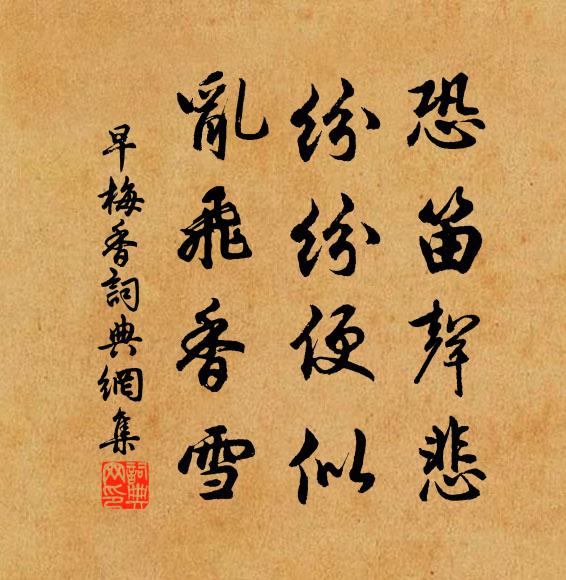 恐笛聲悲
紛紛便似
亂飛香雪
早梅香詞典網集
詞典网印